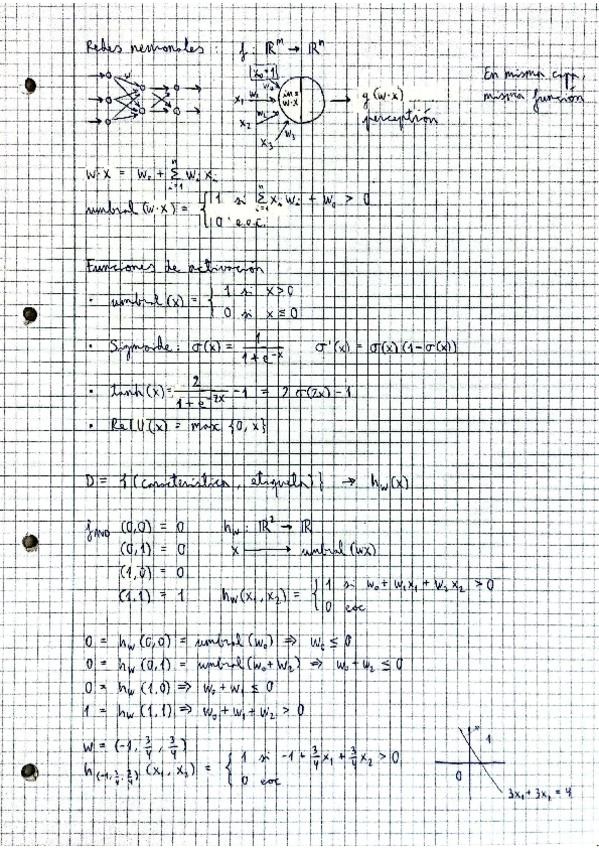 Redes neuronales: f: ℝᵐ → ℝⁿ
x₀=1
w₀
x₁ w₁
in = w·x
→ g(w·x)
perceptrón
x₂ w₂
x₃ w₃
En misma capa
misma función
w·x = w₀ + Σᵢ₌₁ⁿ wᵢ xᵢ
umbral(w·x) = { 1 si Σᵢ₌₁ⁿ xᵢ wᵢ + w₀ > 0
0 e.o.c.
Funciones de activación
· umbral(x) = { 1 si x>0
0 si x≤0
· Sigmoide: σ(x) = 1/(1+e⁻ˣ) σ'(x) = σ(x)(1-σ(x))
· tanh(x) = 2/(1+e⁻²ˣ) - 1 = 2σ(2x) - 1
· ReLU(x) = max {0, x}
D = {(característica, etiqueta)} → h_w(x)
f_AND (0,0) = 0 h_w: ℝ² → ℝ
(0,1) = 0 x ⟶ umbral(wx)
(1,0) = 0
(1,1) = 1 h_w(x₁, x₂) = { 1 si w₀ + w₁x₁ + w₂x₂ > 0
0 eoc
0 = h_w(0,0) = umbral(w₀) ⇒ w₀ ≤ 0
0 = h_w(0,1) = umbral(w₀+w₂) ⇒ w₀+w₂ ≤ 0
0 = h_w(1,0) ⇒ w₀+w₁ ≤ 0
1 = h_w(1,1) ⇒ w₀+w₁+w₂ > 0
w = (-1, 3/4, 3/4)
h_(-1, 3/4, 3/4) (x₁, x₂) = { 1 si -1 + 3/4 x₁ + 3/4 x₂ > 0
0 eoc
1
0
3x₁ + 3x₂ = 4